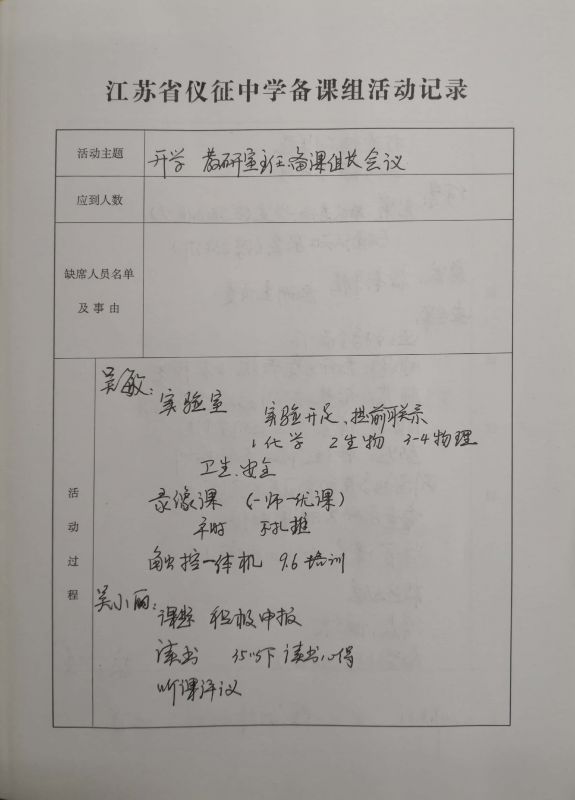 江苏省仪征中学备课组活动记录
活动主题
开学 教研室主任、备课组长会议
应到人数
缺席人员名单
及事由
活动过程
吴敏:
实验室 实验开足、提前联系
1 化学 2 生物 3-4 物理
卫生、安全
录像课 (一师一优课)
平时 不扎堆
触控一体机 9.6 培训
吴小丽:
课题 积极申报
读书 35以下 读书心得
听课评议